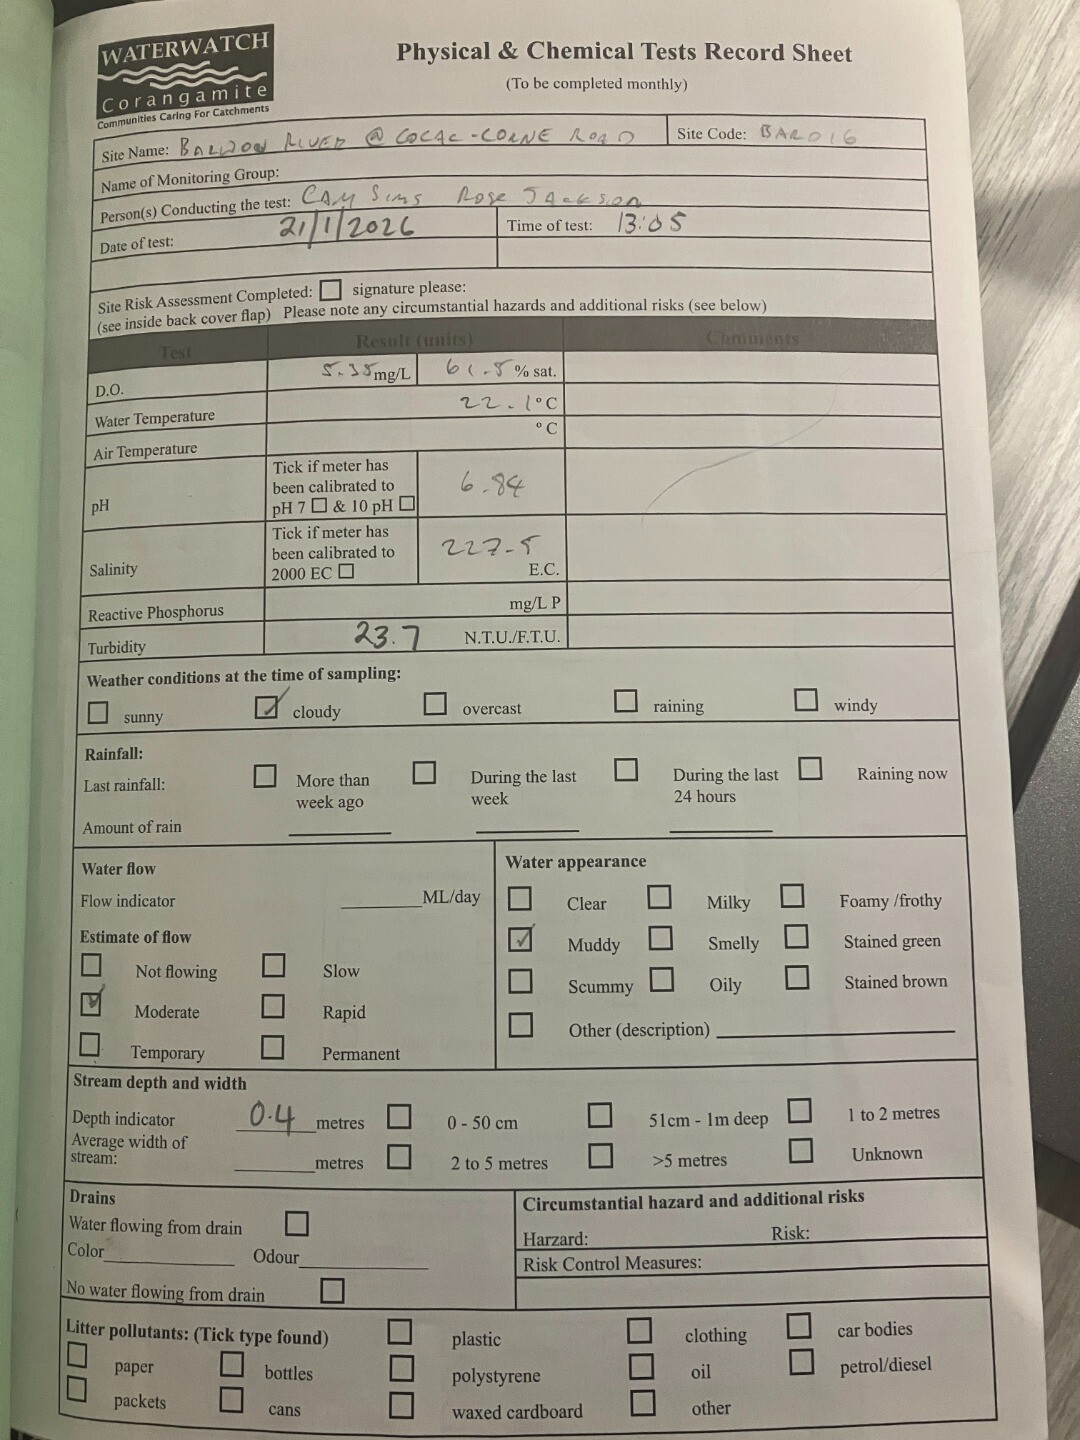 WATERWATCH
Corangamite
Communities Caring For Catchments
Physical & Chemical Tests Record Sheet
(To be completed monthly)
Site Name: BARWON RIVER @ COLAC-LORNE ROAD Site Code: BAR016
Name of Monitoring Group:
Person(s) Conducting the test: CAM SIMS ROSE JACKSON
Date of test: 21/1/2026 Time of test: 13:05
Site Risk Assessment Completed: signature please:
(see inside back cover flap) Please note any circumstantial hazards and additional risks (see below)
Test Result (units) Comments
D.O. 5.35 mg/L 61.5 % sat.
Water Temperature 22.1 °C
Air Temperature °C
pH Tick if meter has been calibrated to pH 7 & 10 pH 6.84
Salinity Tick if meter has been calibrated to 2000 EC 227.5 E.C.
Reactive Phosphorus mg/L P
Turbidity 23.7 N.T.U./F.T.U.
Weather conditions at the time of sampling:
sunny ✓ cloudy overcast raining windy
Rainfall:
Last rainfall: More than week ago During the last week During the last 24 hours Raining now
Amount of rain
Water flow
Flow indicator ML/day
Estimate of flow
Not flowing Slow
✓ Moderate Rapid
Temporary Permanent
Water appearance
Clear Milky Foamy /frothy
✓ Muddy Smelly Stained green
Scummy Oily Stained brown
Other (description)
Stream depth and width
Depth indicator 0.4 metres 0 - 50 cm 51cm - 1m deep 1 to 2 metres
Average width of stream: metres 2 to 5 metres >5 metres Unknown
Drains
Water flowing from drain
Color Odour
No water flowing from drain
Circumstantial hazard and additional risks
Harzard: Risk:
Risk Control Measures:
Litter pollutants: (Tick type found) plastic clothing car bodies
paper bottles polystyrene oil petrol/diesel
packets cans waxed cardboard other